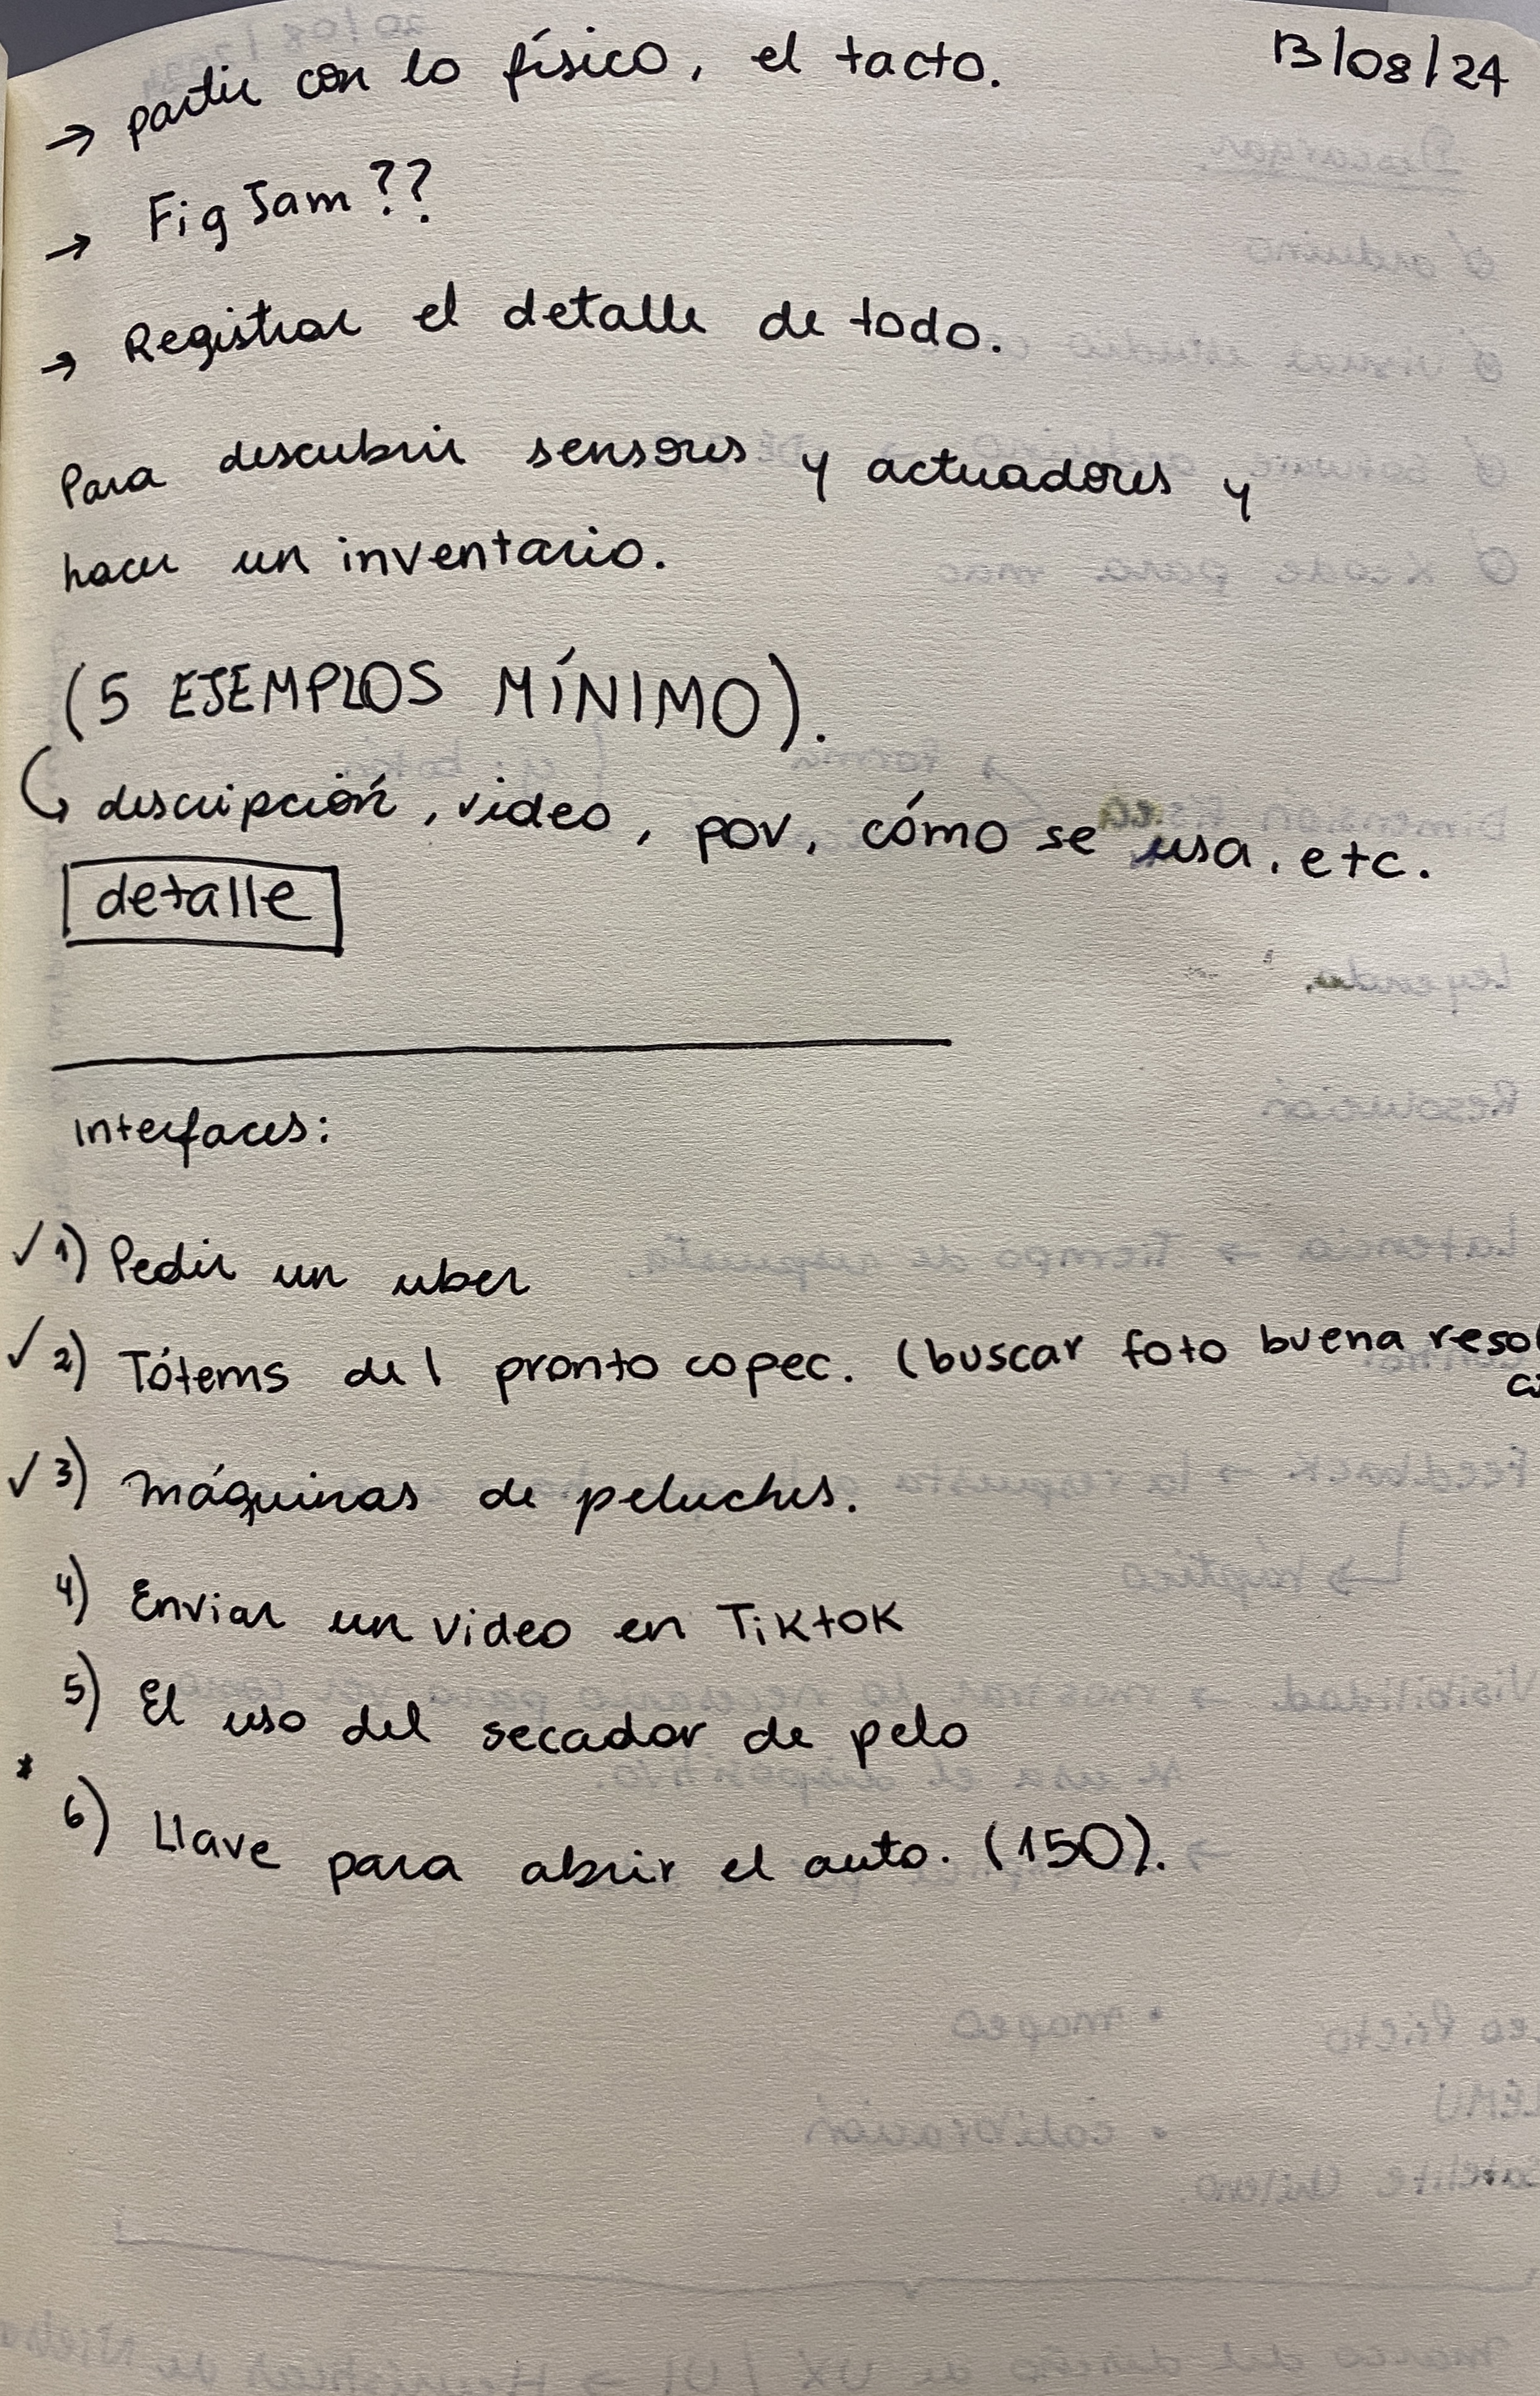 13/08/24
→ partir con lo físico, el tacto.
→ FigJam??
→ Registrar el detalle de todo.
Para descubrir sensores y actuadores y
hacer un inventario.
(5 EJEMPLOS MÍNIMO).
↳ descripción, video, pov, cómo se usa, etc.
detalle
Interfaces:
✓ 1) Pedir un uber
✓ 2) Tótems del pronto copec. (buscar foto buena
✓ 3) máquinas de peluches.
4) Enviar un video en TikTok
5) El uso del secador de pelo
* 6) Llave para abrir el auto. (150).